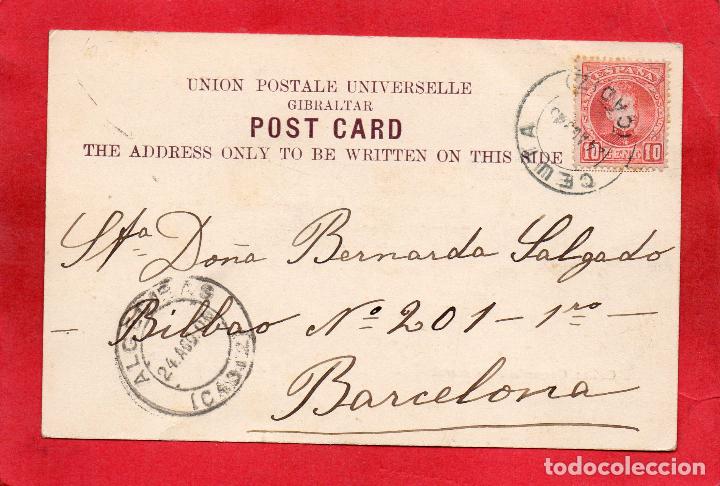 UNION POSTALE UNIVERSELLE
GIBRALTAR
POST CARD
THE ADDRESS ONLY TO BE WRITTEN ON THIS SIDE
ESPAÑA
10 CENT. 10
CEUTA
Sta Doña Bernarda Salgado
- Bilbao Nº 201 - 1ro -
Barcelona
ALGECIRAS
24 AGO
(CADIZ)
todocoleccion.net